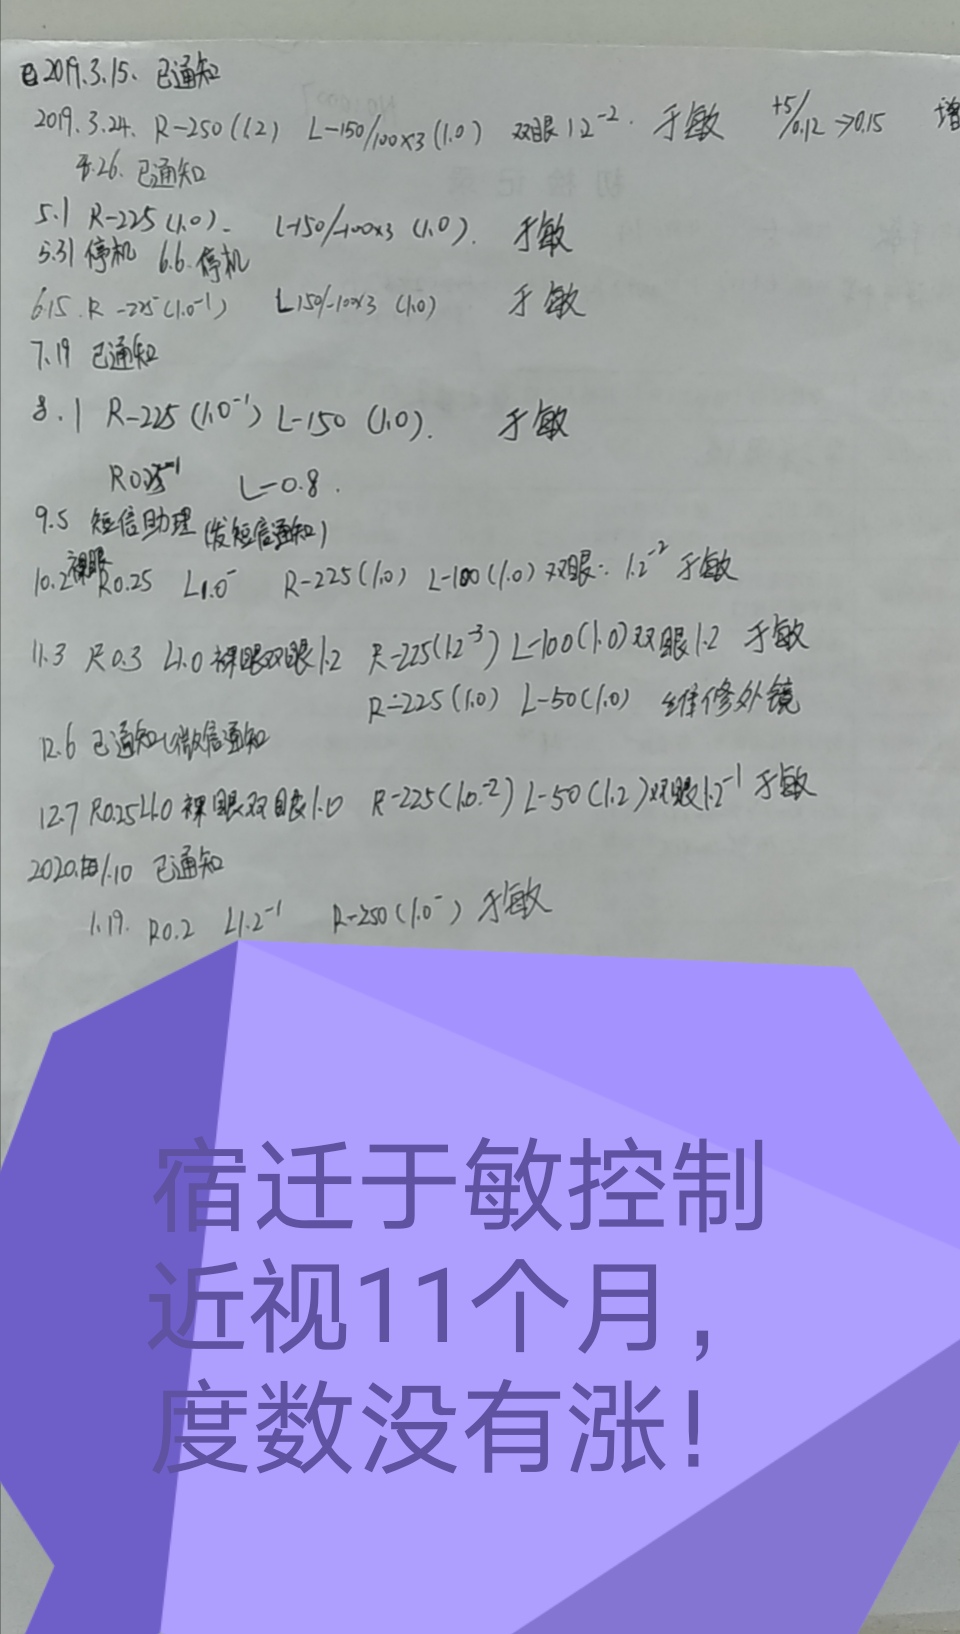 2019.3.15. 已通知
2019.3.24. R-250(1.2) L-150/100×3(1.0) 双眼1.2⁻² 于敏 +5/0.12→0.15 增
4.26. 已通知
5.1 R-225(1.0). L-150/-100×3 (1.0). 于敏
5.31 停机 6.6. 停机
6.15. R -225(1.0⁻¹) L150/-100×3 (1.0) 于敏
7.19 已通知
8.1 R-225(1.0⁻¹) L-150 (1.0). 于敏
L-0.8.
9.5 短信助理(发短信通知)
10.2 裸眼R0.25 L1.0⁻ R-225(1.0) L-100(1.0)双眼: 1.2⁻² 于敏
11.3 R0.3 L1.0 裸眼双眼1.2 R-225(1.2⁻³) L-100(1.0)双眼1.2 于敏
R-225(1.0) L-50(1.0) 维修外镜
12.6 已通知(微信通知
12.7 R0.25L1.0 裸眼双眼1.0 R-225(1.0⁻²) L-50(1.2)双眼1.2⁻¹ 于敏
2020.1.10 已通知
1.19. R0.2 L1.2⁻¹ R-250(1.0⁻) 于敏
宿迁于敏控制
近视11个月，
度数没有涨！